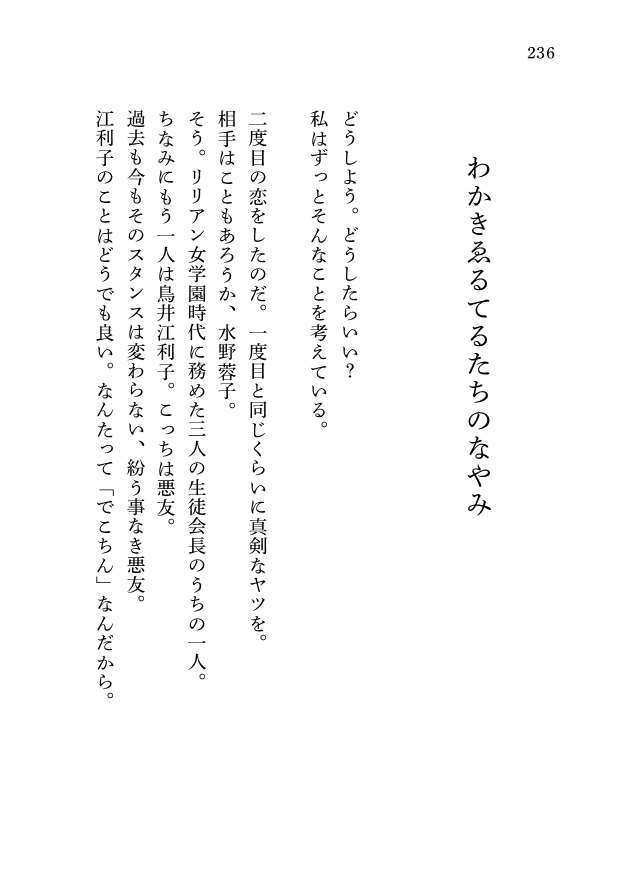 236
わかきゑるてるたちのなやみ
どうしよう。どうしたらいい？
私はずっとそんなことを考えている。
二度目の恋をしたのだ。一度目と同じくらいに真剣なヤツを。
相手はこともあろうか、水野蓉子。
そう。リリアン女学園時代に務めた三人の生徒会長のうちの一人。
ちなみにもう一人は鳥井江利子。こっちは悪友。
過去も今もそのスタンスは変わらない、紛う事なき悪友。
江利子のことはどうでも良い。なんたって「でこちん」なんだから。